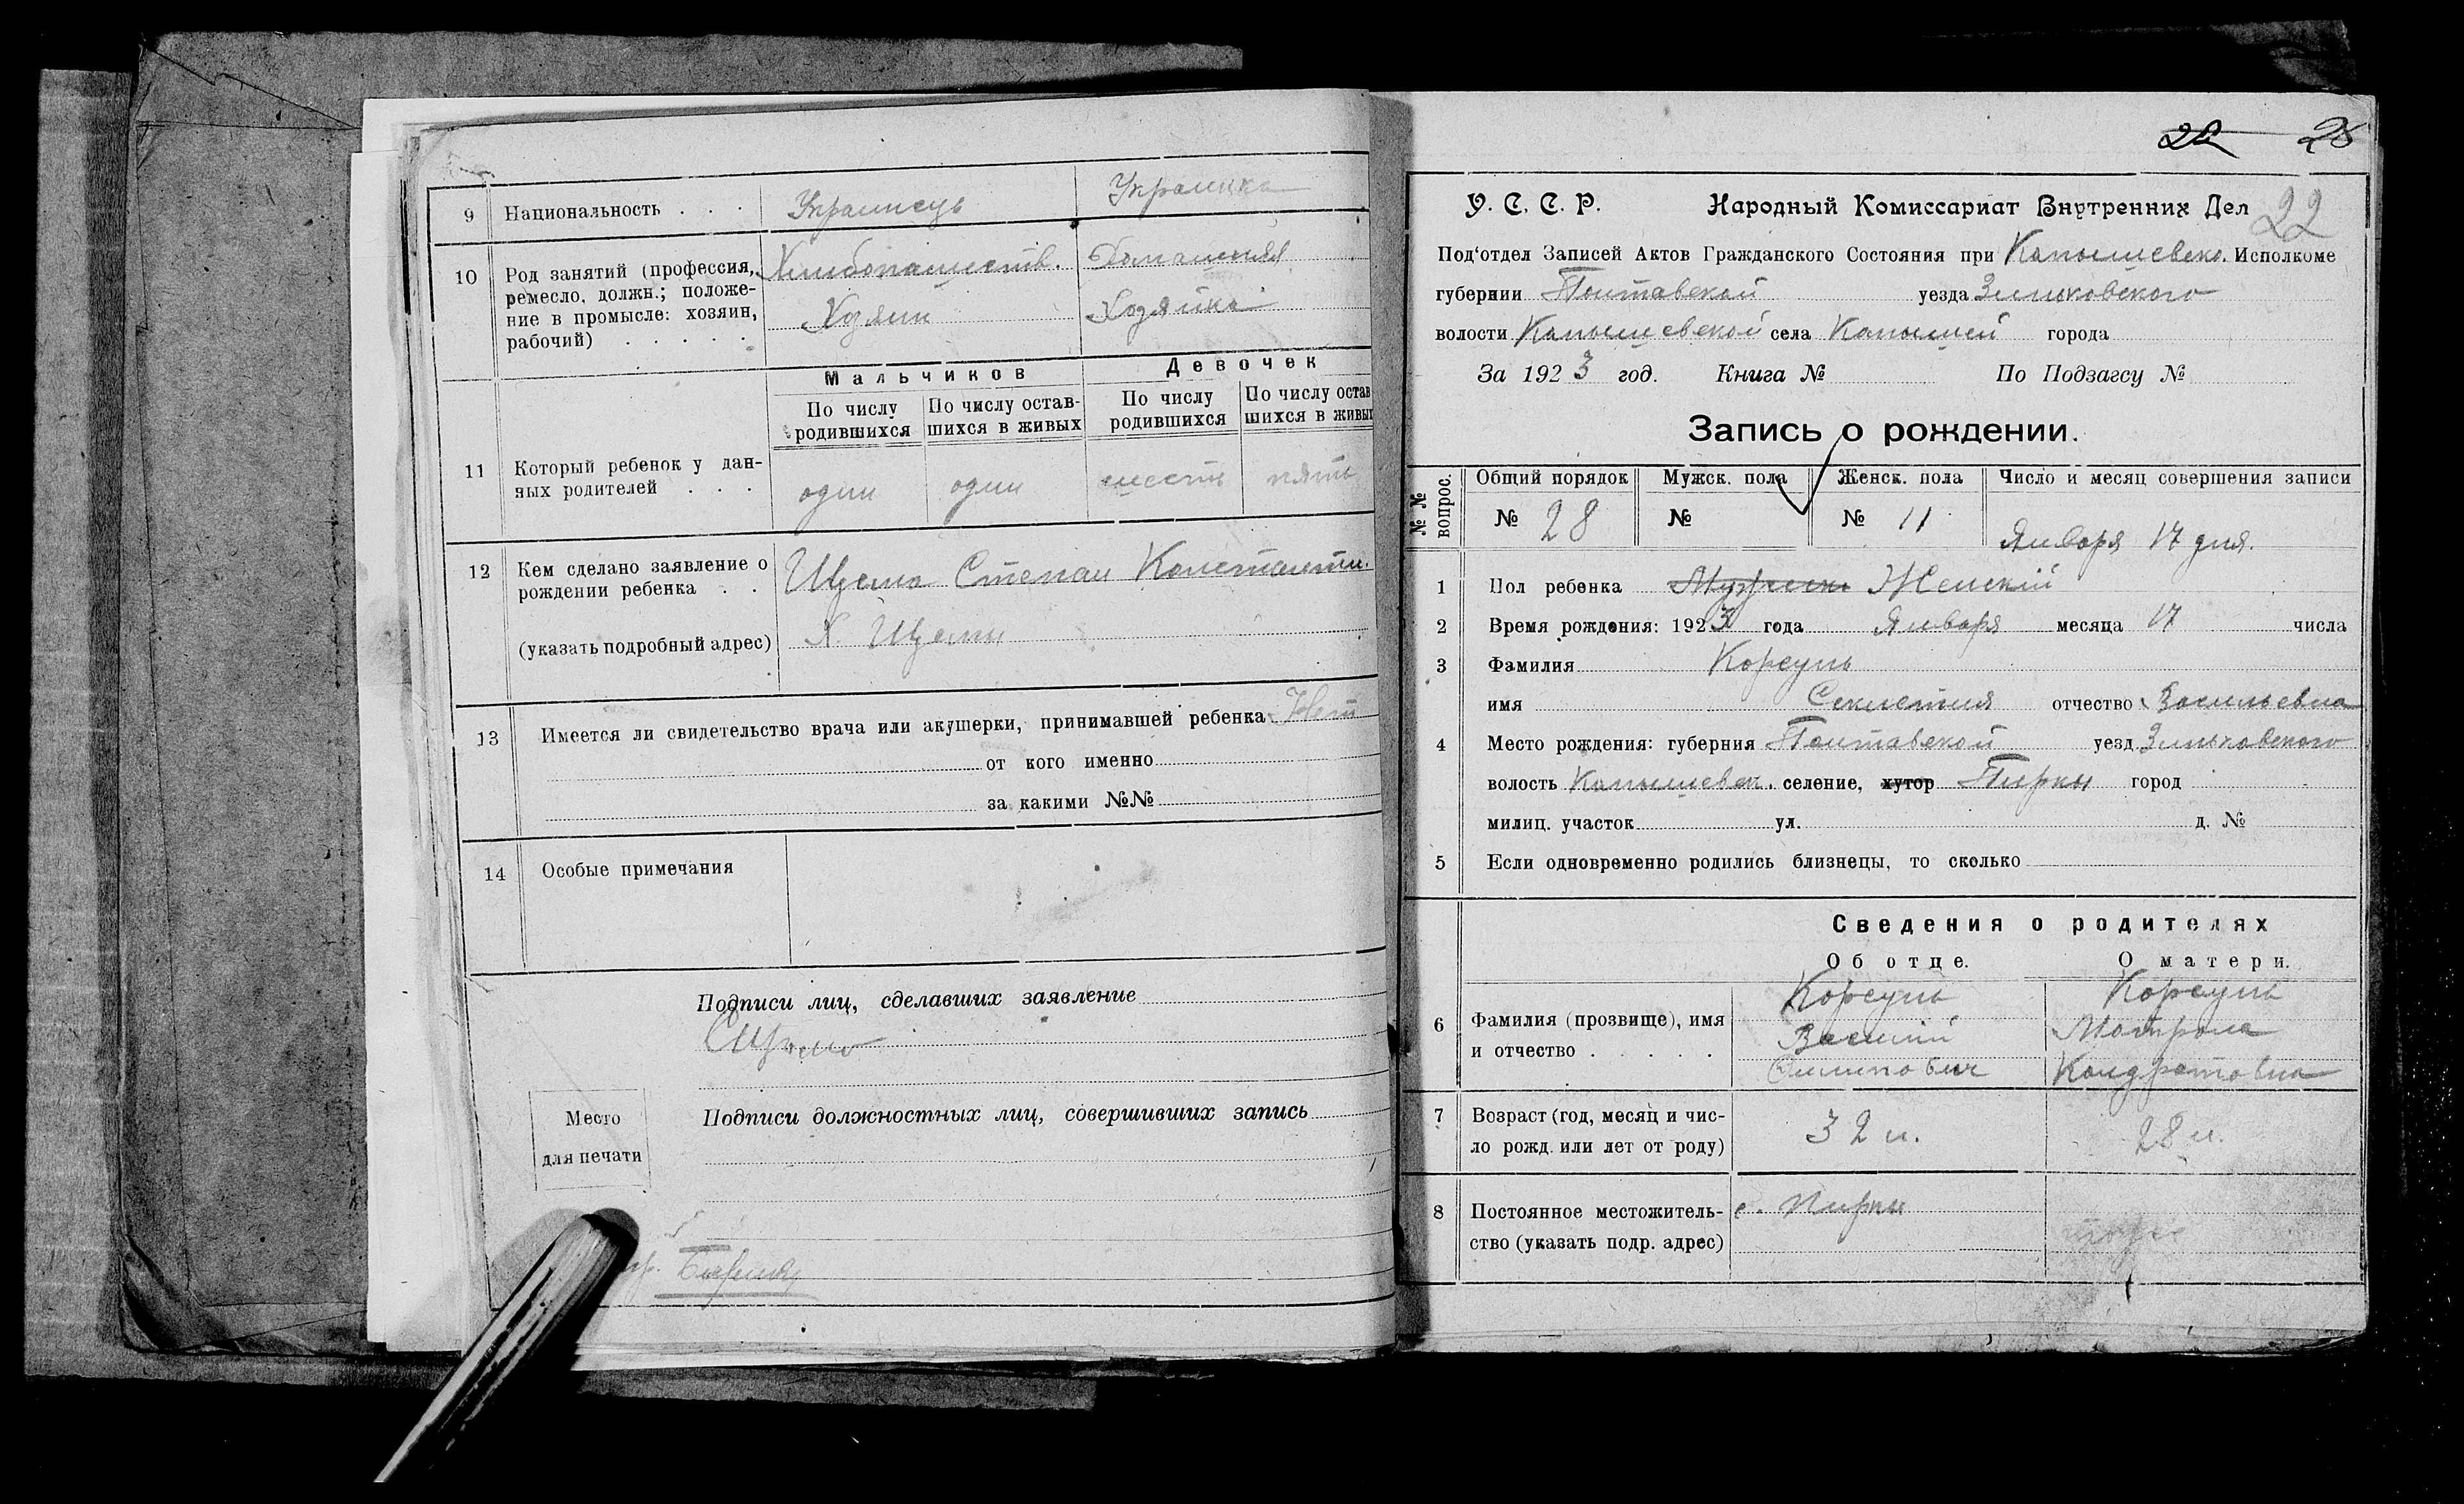 9 Национальность . . . Украинець Украинка
10 Род занятий (профессия, Хлибопашеств. Домашняя
ремесло, должн.; положе-
ние в промысле: хозяин, Хозяин Хозяйка
рабочий) . . . . .
Мальчиков Девочек
По числу родившихся По числу остав-шихся в живых По числу родившихся По числу остав шихся в живых
11 Который ребенок у дан-
ных родителей . . . один один шесть пять
12 Кем сделано заявление о Щема Степан Константи.
рождении ребенка . .
(указать подробный адрес) Х. Щемы
13 Имеется ли свидетельство врача или акушерки, принимавшей ребенка Нет
от кого именно
за какими №№
14 Особые примечания
Подписи лиц, сделавших заявление
Место
для печати
Подписи должностных лиц, совершивших запись
28 28
У. С. С. Р. Народный Комиссариат Внутренних Дел 22
Под‘отдел Записей Актов Гражданского Состояния при Капышевско. Исполкоме
губернии Полтавской уезда Зиньковского
волости Капышевской села Капышей города
За 1923 год. Книга № По Подзагсу №
Запись о рождении.
№ № вопрос. Общий порядок Мужск. пола Женск. пола Число и месяц совершения записи
№ 28 № № 11 Января 17 дня.
1 Пол ребенка Мужеск Женский
2 Время рождения: 1923 года Января месяца 17 числа
3 Фамилия Корсунь
имя Секлетия отчество Васильевна
4 Место рождения: губерния Полтавской уезд Зиньковского
волость Капышевск. селение, хутор Пирки город
милиц. участок ул. д. №
5 Если одновременно родились близнецы, то сколько
Сведения о родителях
Об отце. О матери.
Корсунь Корсунь
6 Фамилия (прозвище), имя Василий Матрона
и отчество . . . . . Филипович Кондратовна
7 Возраст (год, месяц и чис-
ло рожд. или лет от роду) 32 л. 28 л.
8 Постоянное местожитель- с. Пирки
ство (указать подр. адрес) тоже